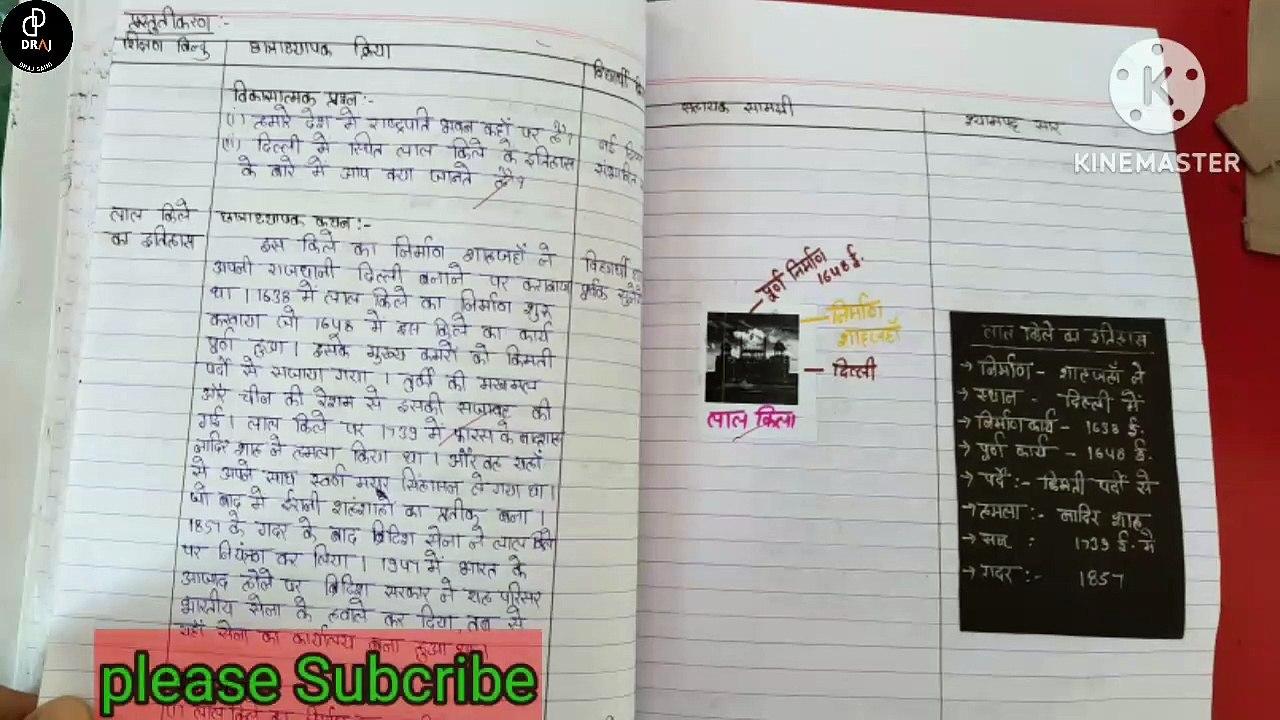 DRAJ
DRAJ SAINI
प्रस्तुतीकरण :-
शिक्षण बिन्दु
छात्राध्यापक क्रिया
विद्यार्थी
विकासात्मक प्रश्न :-
(i) हमारे देश में राष्ट्रपति भवन कहाँ पर है?
(ii) दिल्ली में स्थित लाल किले के इतिहास
के बारे में आप क्या जानते है?
नई
लाल किले
का इतिहास
छात्राध्यापक कथन :-
इस किले का निर्माण शाहजहाँ ने
अपनी राजधानी दिल्ली बनाने पर करवाया
था। 1638 में लाल किले का निर्माण शुरू
करवाया जो 1648 में इस किले का कार्य
पुर्ण हुआ। इसके मुख्य कमरो को किमती
पर्दो से सजाया गया। तुर्की की मखमल
और चीन की रेशम से इसकी सजावट की
गई। लाल किले पर 1739 में फारस के बादशाह
नादिर शाह ने हमला किया था। और वह यहाँ
से अपने साथ स्वर्ण मयूर सिंहासन ले गया था।
जो बाद में ईरानी शहंशाहो का प्रतीक बना।
1857 के गदर के बाद ब्रिटिश सेना ने लाल किले
पर नियंत्रण कर लिया। 1947 में भारत के
आजाद होने पर ब्रिटिश सरकार ने यह परिसर
भारतीय सेना के हवाले कर दिया, तब से
यहाँ सेना का कार्यालय बना हुआ
विद्यार्थी
पूर्वक सुनेगें
please Subcribe
(i) लाल किले का निर्माण
सहायक सामग्री
श्यामपट्ट सार
पूर्ण निर्माण
1648 ई.
निर्माण
शाहजहाँ
दिल्ली
लाल किला
लाल किले का इतिहास
→ निर्माण - शाहजहाँ ने
→ स्थान - दिल्ली में
→ निर्माण कार्य - 1638 ई.
→ पुर्ण कार्य - 1648 ई.
→ पर्दे :- किमती पर्दो से
→ हमला :- नादिर शाह
→ सन् : 1739 ई. में
→ गदर :- 1857
KINEMASTER